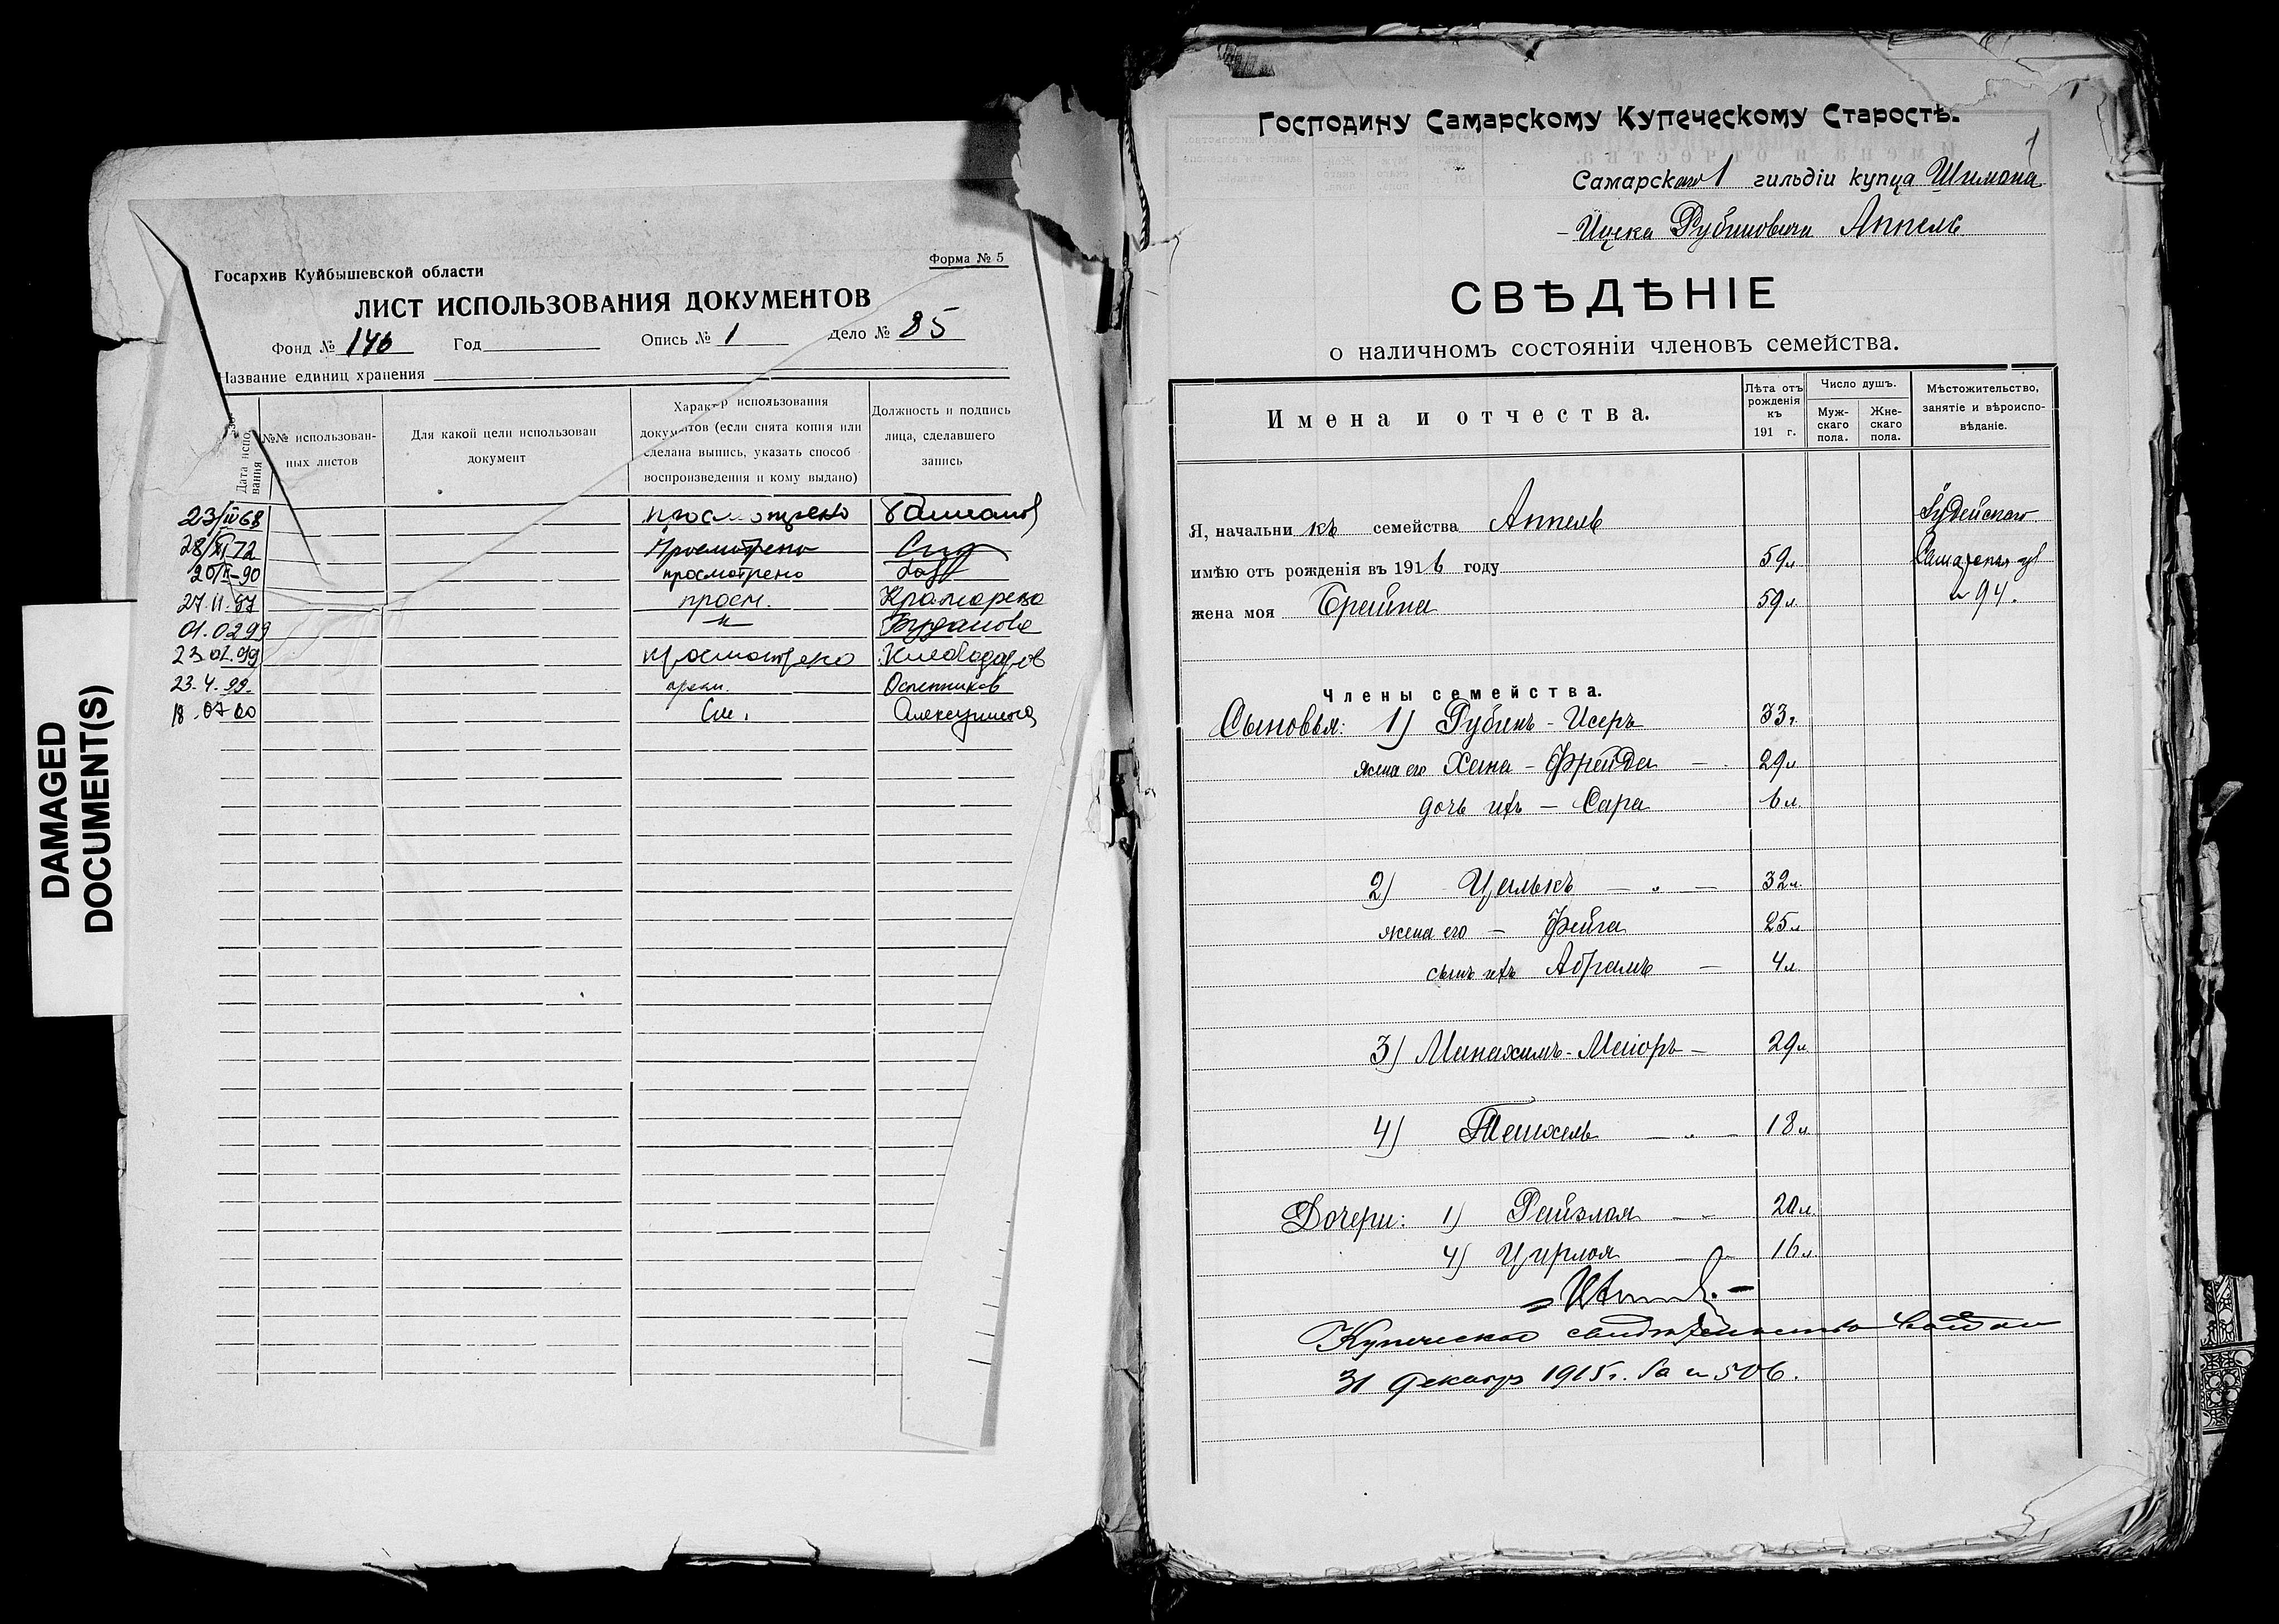 DAMAGED
DOCUMENT(S)
Госархив Куйбышевской области
Форма № 5
ЛИСТ ИСПОЛЬЗОВАНИЯ ДОКУМЕНТОВ
Фонд № 146 Год Опись № 1 Дело № 85
Название единиц хранения
Дата испо
вания
№№ использован-
ных листов
Для какой цели использован
документ
Характ р использования
документов (если снята копия или
сделана выпись, указать способ
воспроизведения и кому выдано)
Должность и подпись
лица, сделавшего
запись
23/IV 68 просмотрено
28/XI 72 Просмотрено
20/II-90 просмотрено
27.11.97 просм.
01.02 99 -"-
23.02.99 просмотрено
23.4.99. Оспенников
18.07 00 См.
1
Господину Самарскому Купеческому Старостѣ.
1
Самарскаго 1 гильдіи купца Шимона
- Ицека Рубиновича Аппель
СВѢДѢНІЕ
о наличномъ состояніи членовъ семейства.
Имена и отчества.
Лѣта отъ
рожденія
къ
191 г.
Число душъ.
Муж-
скаго
пола.
Жне-
скаго
пола.
Мѣстожительство,
занятіе и вѣроиспо-
вѣданіе.
Я, начальни къ семейства Аппель Іудейскаго
имѣю отъ рожденія въ 1916 году 59 л Самарская
жена моя Брайна 59 л. № 94.
Члены семейства.
Сыновья: 1) Рубинъ - Исеръ 33 г.
жена его Хана - Фрейда - 29 л
дочь ихъ - Сара 6 л.
2) Целыкъ - " - 32 л.
жена его - Фейга 25 л
сынъ ихъ Абрамъ - 4 л.
3) Минахимъ - Меіоръ - 29 л
4) 18 л
Дочери: 1) Райзлая - " 20 л
4) Цирлоя - " - 16 л
Купеческое свидѣтельство
31 декабр 1915 г. За № 506.